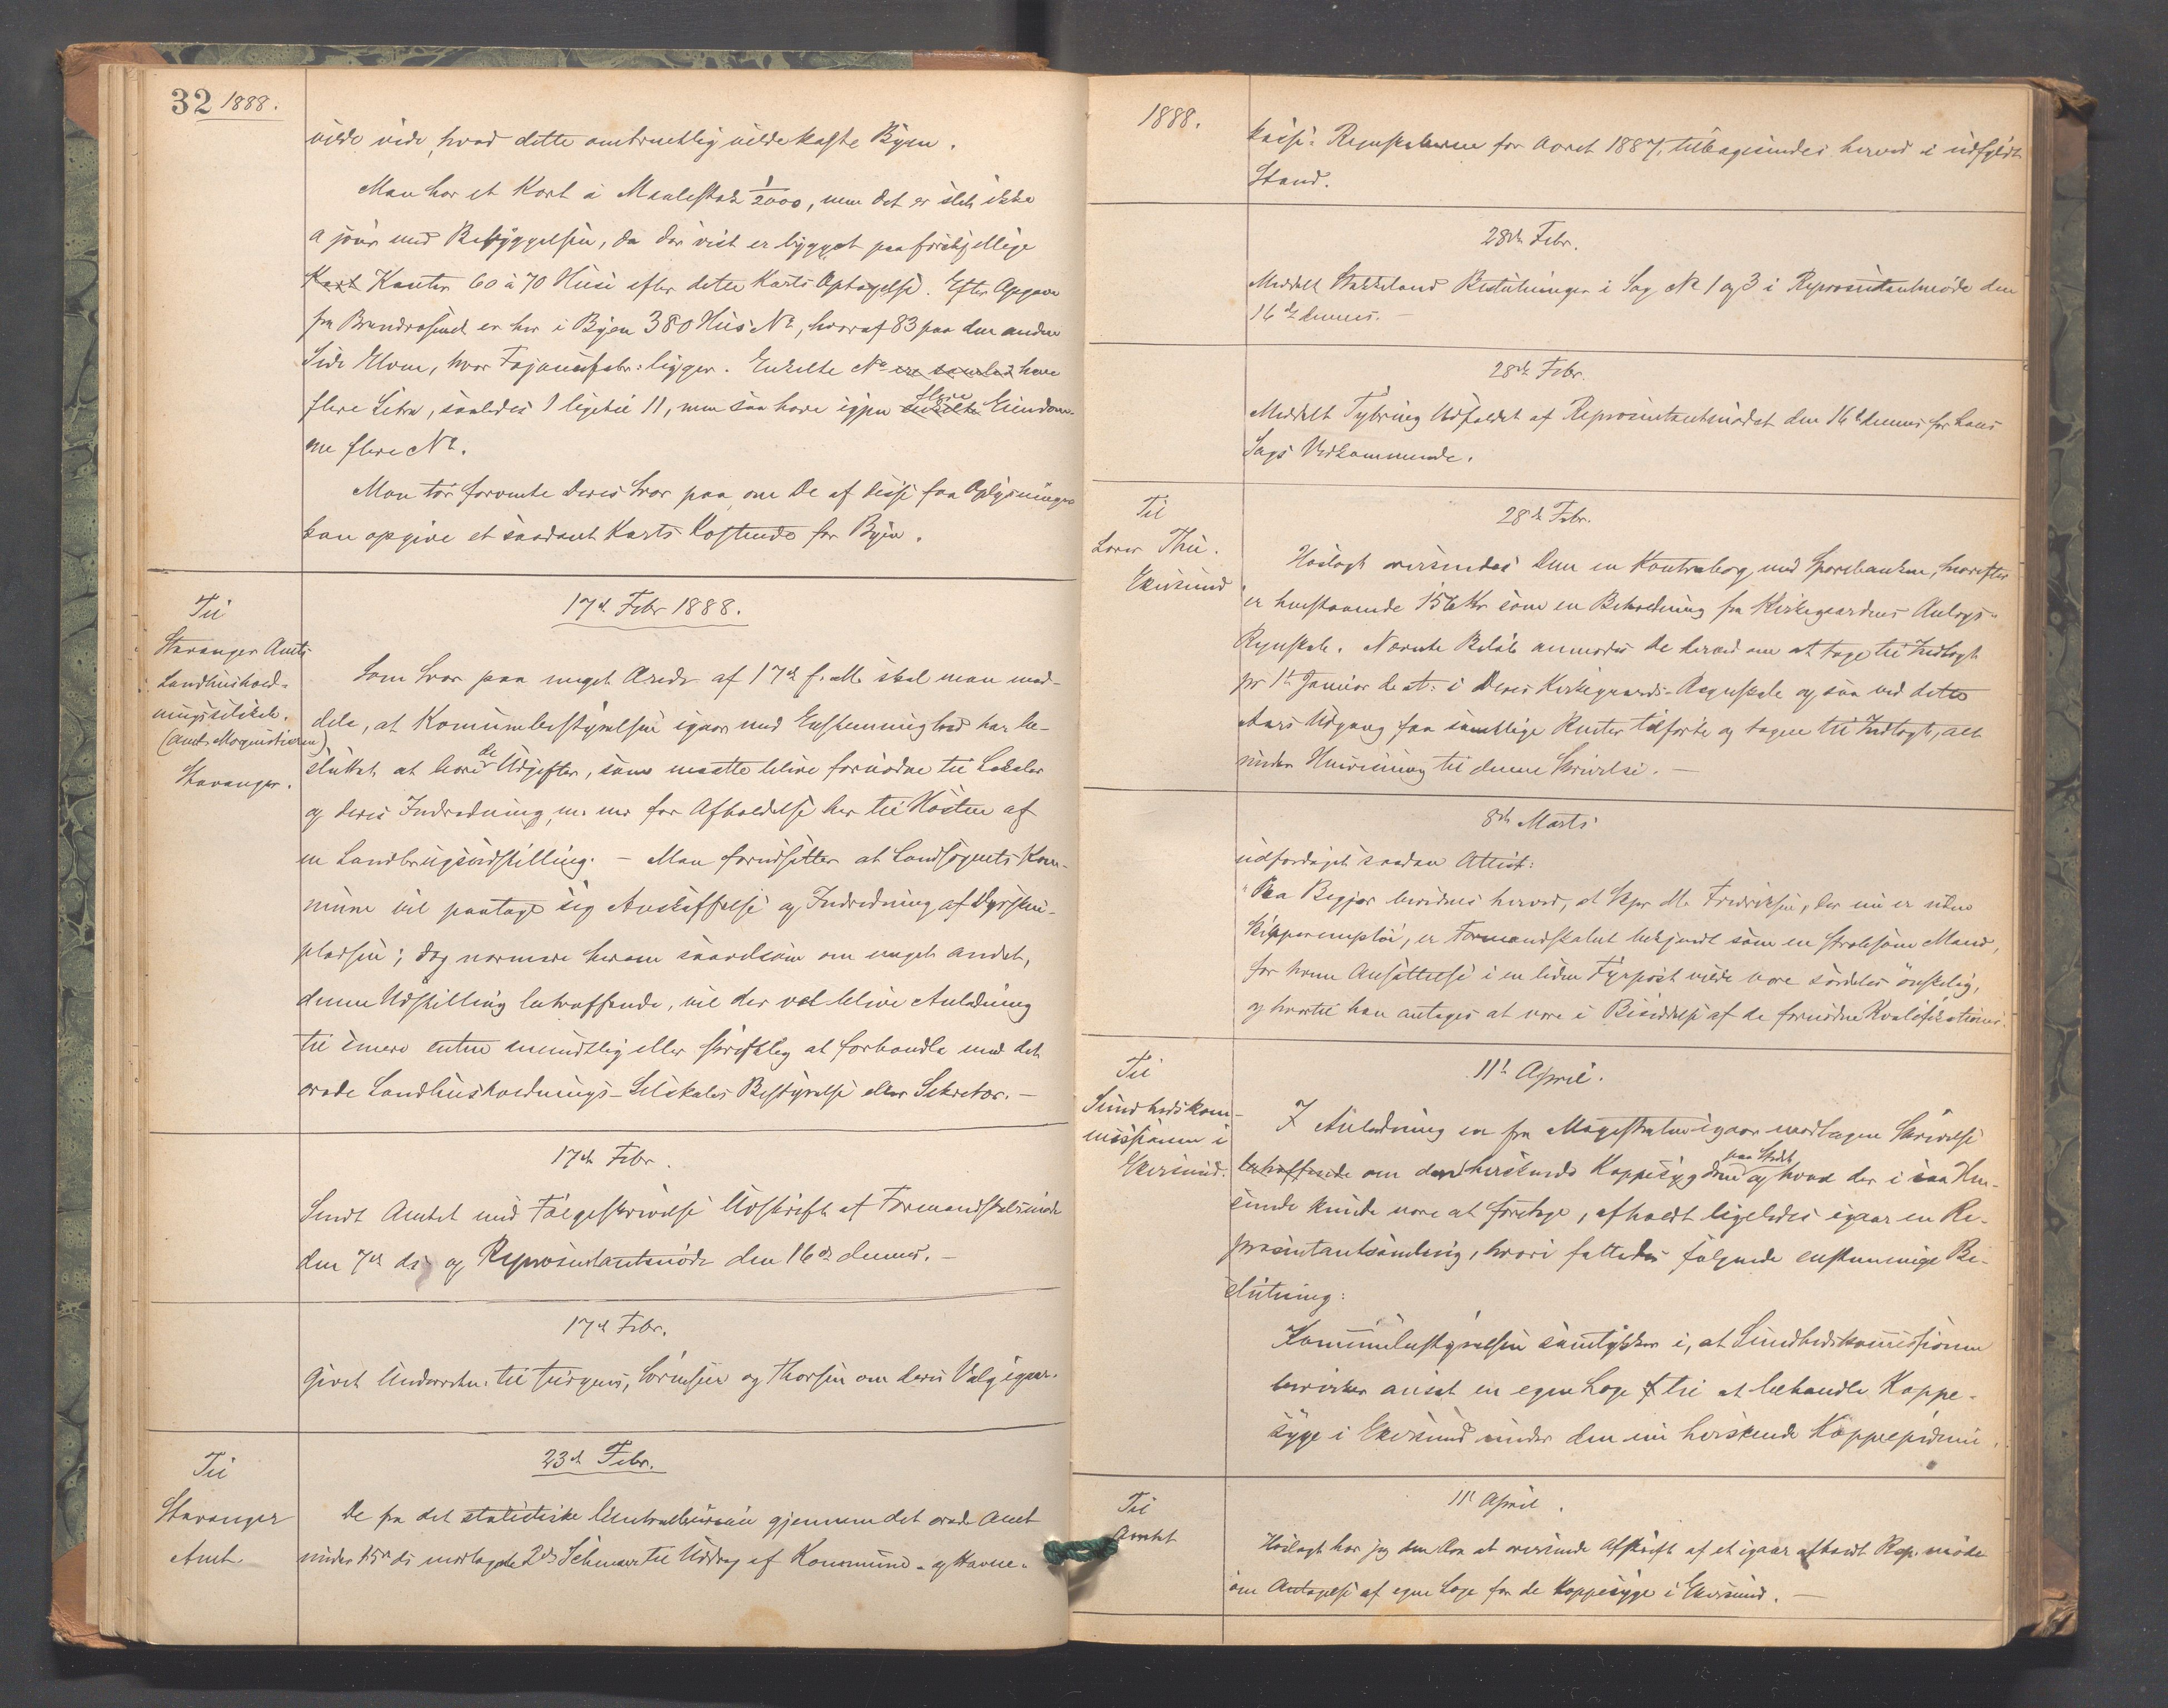 32 1888.
vilde vide, hvad dette omtrentlig vilde koste Byen.
Man har et Kart i Maalestok 1/2000, men det er slet ikke
a jour med Bebyggelsen, da der vist er bygget paa forskjellige
Kart Kanter 60 à 70 Huse efter dette Karts Optagelse. Efter Opgave
fra Brandvæsenet er her i Byen 380 Hus No, hvoraf 83 paa den anden
Side Elven, hvor Fajancefabr: ligger. Enkelte No ere samlet have
flere Litra, saaledes 1 ligetil 11, men saa have igjen enkelte flere Eiendom-
me flere No.
Man tør forvente Deres Svar paa, om De af disse faa Oplysninger
kan opgive et saadant Karts Kostende for Byen.
Til
Stavanger Amts
Landhushold-
ningsselskab.
(Amts Magnusdieren)
Stavanger.
17d Febr 1888.
Som Svar paa meget Ærede af 17de f. M. skal man med-
dele, at Komunebestyrelsen igaar med Enstemmighed har be-
sluttet at bære de Udgifter, som maatte blive fornødne til Lokaler
og deres Indredning m. m. for Afholdelse her til Høsten af
en Landbrugsudstilling. – Man forudsetter at Landsognets Kom-
mune vil paatage sig Anskaffelse og Indredning af Dyrsku-
pladsen; dog nærmere herom saavelsom om meget andet,
denne Udstilling betræffende, vil der vel blive Anledning
til senere enten mundtlig eller skriftlig at forhandle med det
ærede Landhusholdnings-Selskabs Bestyrelse eller Sekretær. –
17de Febr.
Sendt Amtet med Følgeskrivelse Udskrift af Formandskabsmøde
den 7de ds og Repræsentantmøde den 16de dennes. –
17d Febr.
Givet Underretn. til Jürgens, Sørensen og Thorsen om deres Valg igaar.
Til
Stavanger
Amt.
23d Febr.
De fra det statistiske Centralbureau gjennem det ærede Amt
under 15de ds modtagede 2de Schemaer til Uddrag af Kommune- og Havne-
1888.
kasse-Regnskaberne for Aaret 1887, tilbagesendes herved i udfyldt
Stand.
28de Febr.
Meddelt Stakkeland Beslutninger i Sag No 1 og 3 i Repræsentantmøde den
16de dennes. –
28de Febr.
Meddelt Tybring Udfaldet af Repræsentantmødet den 16de dennes for hans
Sags Vedkommende.
Til
Lærer Thu.
Ekersund
28de Febr.
Hoslagt oversendes Dem en Kontrabog med Sparebanken, hvorefter
er henstaaende 156 Kr som en Beholdning fra Kirkegaardens Anlægs-
Regnskab. Nævnte Beløb anmodes De herved om at tage til Indtægt
pr 1ste Januar d. A. i Deres Kirkegaards-Regnskab og saa ved dette
Aars Udgang faa samtlige Renter tilførte og tagne til Indtægt, alt
under Henvisning til denne Skrivelse. –
8de Marts
udfærdiget saadan Attest:
"Paa Begjær bevidnes herved, at Skpr M. Fredriksen, der nu er uden
Skipperemploi, er Formandskabet bekjendt som en stræbsom Mand,
for hvem Ansættelse i en liden Fyrpost vilde være særdeles ønskelig,
og hvortil han antages at være i Besiddelse af de fornødne Kvalifikationer.
Til
Sundhedskom-
missionen i
Ekersund.
11te April.
I Anledning en fra Magistraten igaar modtagen Skrivelse
betræffende om den herskende Koppesygdom paa Stedet og hvad der i saa Hen-
seende kunde være at foretage, afholdt ligeledes igaar en Re-
præsentantsamling, hvori fattedes følgende enstemmige Be-
slutning:
Komunebestyrelsen samtykker i, at Sundhedskomissionen
bevirker ansat en egen Læge til at behandle Koppe-
syge i Ekersund under den nu herskende Koppeepidemi.
Til
Amtet
11te April.
Hoslagt har jeg den Ære at oversende Afskrift af et igaar afholdt Rep. møde
om Antagelse af egen Læge for de Koppesyge i Ekersund. –